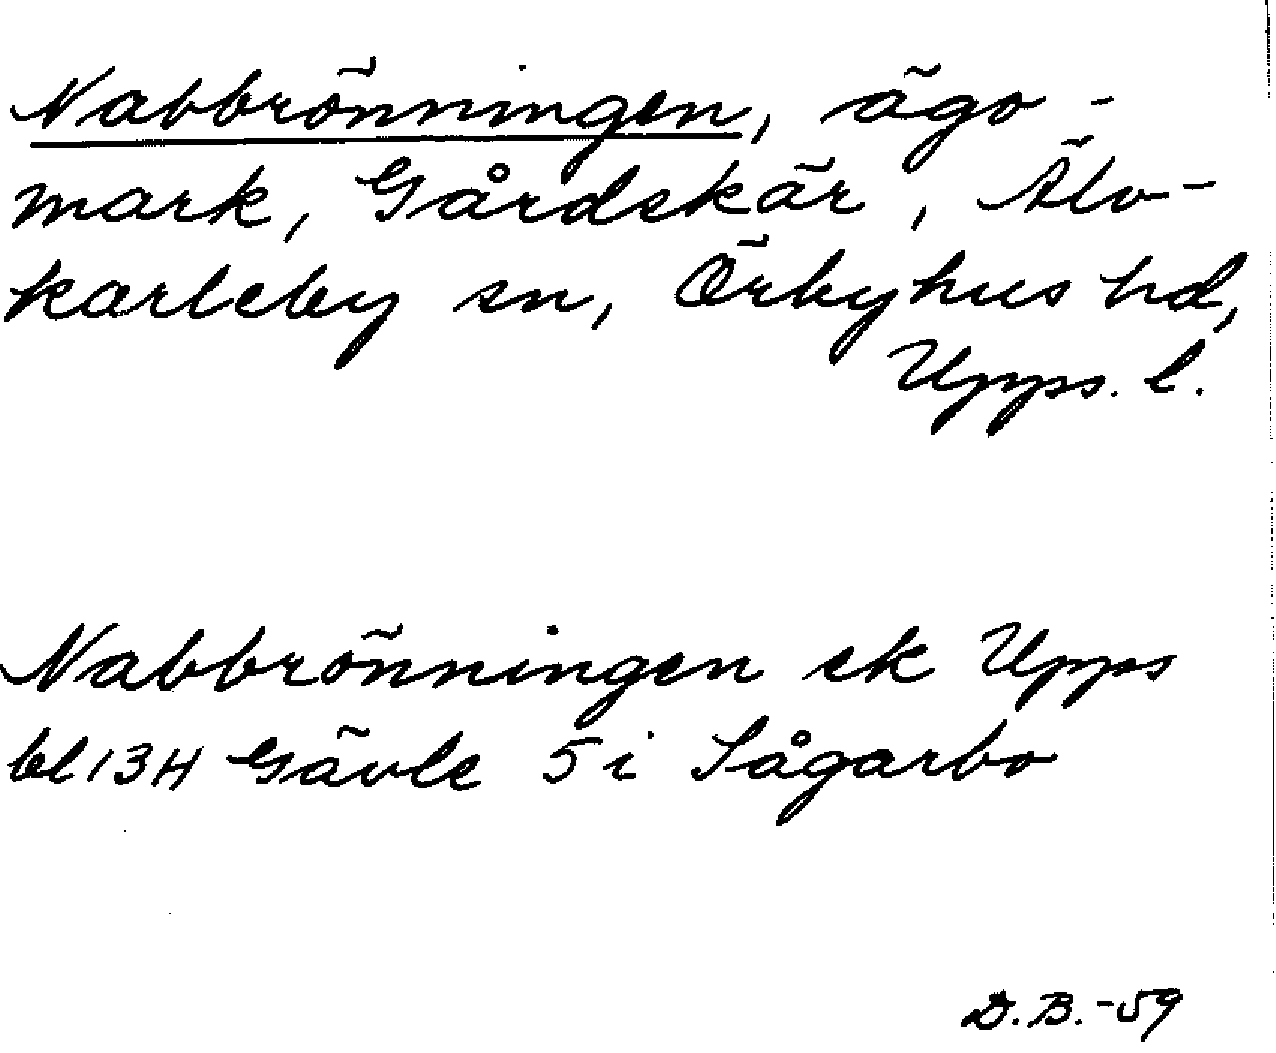 Nabbrönningen, ägo-
mark, Gårdskär, Älv-
karleby sn, Örbyhus hd,
Upps. l.
Nabbrönningen ek Upps
bl 13H Gävle 5 i Sågarbo
D.B.-59